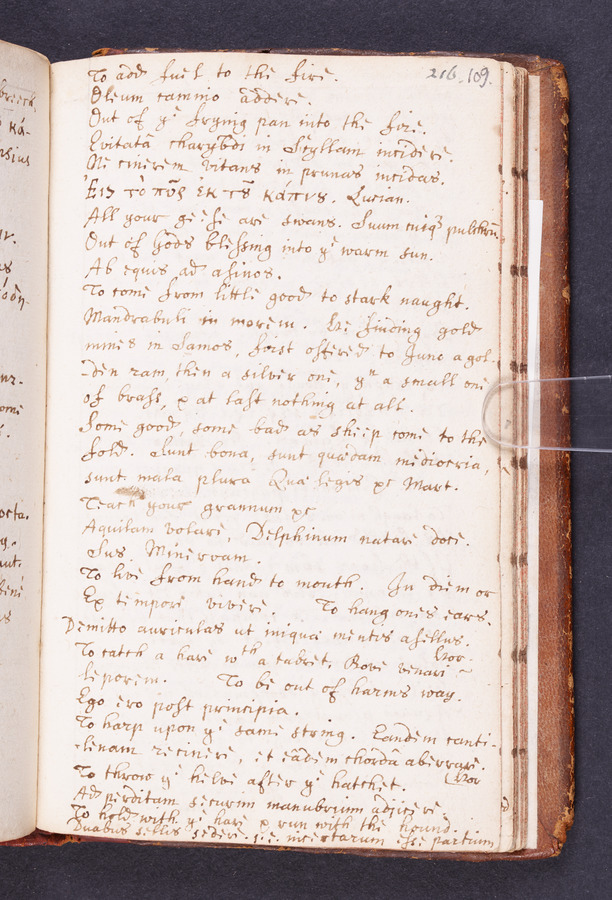 216. 109.
To add fuel to the fire.
Oleum camino addere.
Out of ye frying pan into the fire.
Evitatâ charybdi in Scyllam incidere.
Ne cinerem vitans in prunas incidas.
Ἐις τὸ πῦς ἐκ τȣ͂ κάπνȣ. Lucian.
All your geese are swans. Suum cuiqꝫ pulchrū.
Out of Gods blessing into ye warm sun.
Ab equis ad asinos.
To come from little good to stark naught.
Mandrabuli in morem. He finding gold
mines in Samos, first offered to Juno a gol-
-den ram, then a silver one, yn a small one
of brass, & at last nothing at all.
Some good, some bad as sheep come to the
fold. Sunt bona, sunt quædam mediocria,
sunt mala plura Quæ legis &c Mart.
Teach your grannum &c
Aquilam volare, Delphinum natare doce.
Sus Minervam.
To live from hand to mouth. In diem or
Ex tempore vivere. To hang ones ears.
Demitto auriculas ut iniquæ mentis asellus.
Hor.
To catch a hare wth a tabret. Bove venari
leporem. To be out of harms way.
Ego ero post principia.
To harp upon ye same string. Eandem canti-
-lenam recinere, et eâdem chordâ aberrare.
Hor
To throw ye helve after ye hatchet.
Ad perditam securim manubrium adjicere.
To hold with ye hare & run with the hound.
Duabus sellis sedere. i.e. incertarum esse partium